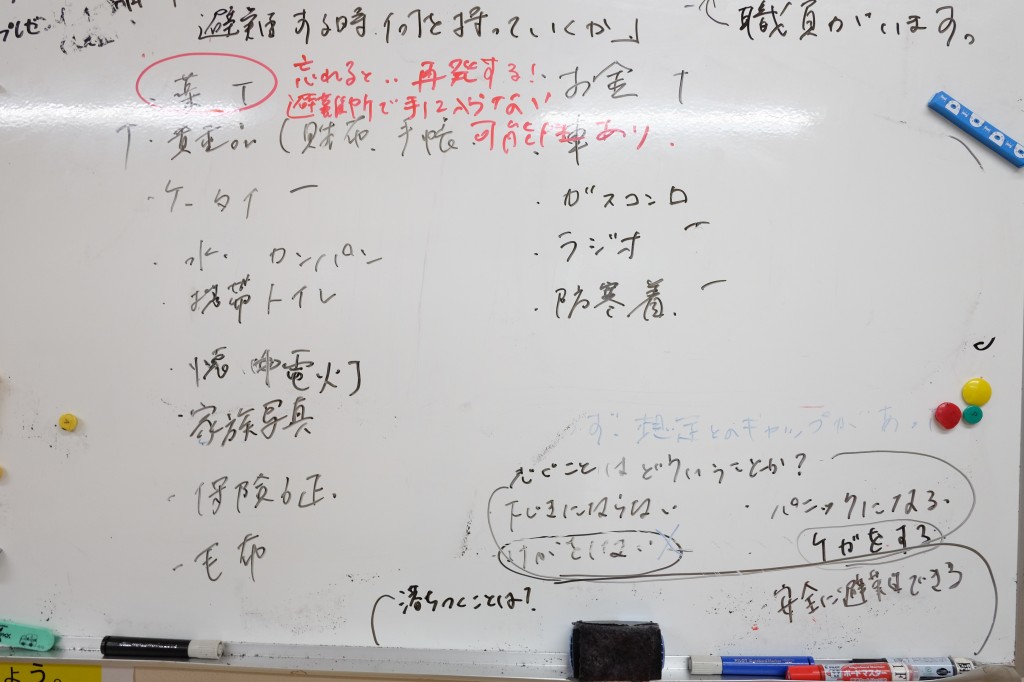 避難する時、何を持っていくか」
職員がいます。
・薬 T
忘れると‥再発する!
避難所で手に入らない
可能性あり.
・お金 T
T・貴重品(財布、手帳
・車
・ケータイ ー
・ガスコンロ
・水、カンパン
・ラジオ ー
・携帯トイレ
・防寒着. ー
・懐中電灯
・家族写真
・保険証.
・毛布
ず.想定とのギャップがあっ
急ぐことはどういうことか?
下じきにならない
・パニックになる.
けがをしない
ケガをする
落ちつくことは?
安全に避難できる
ボードマスター
よう。